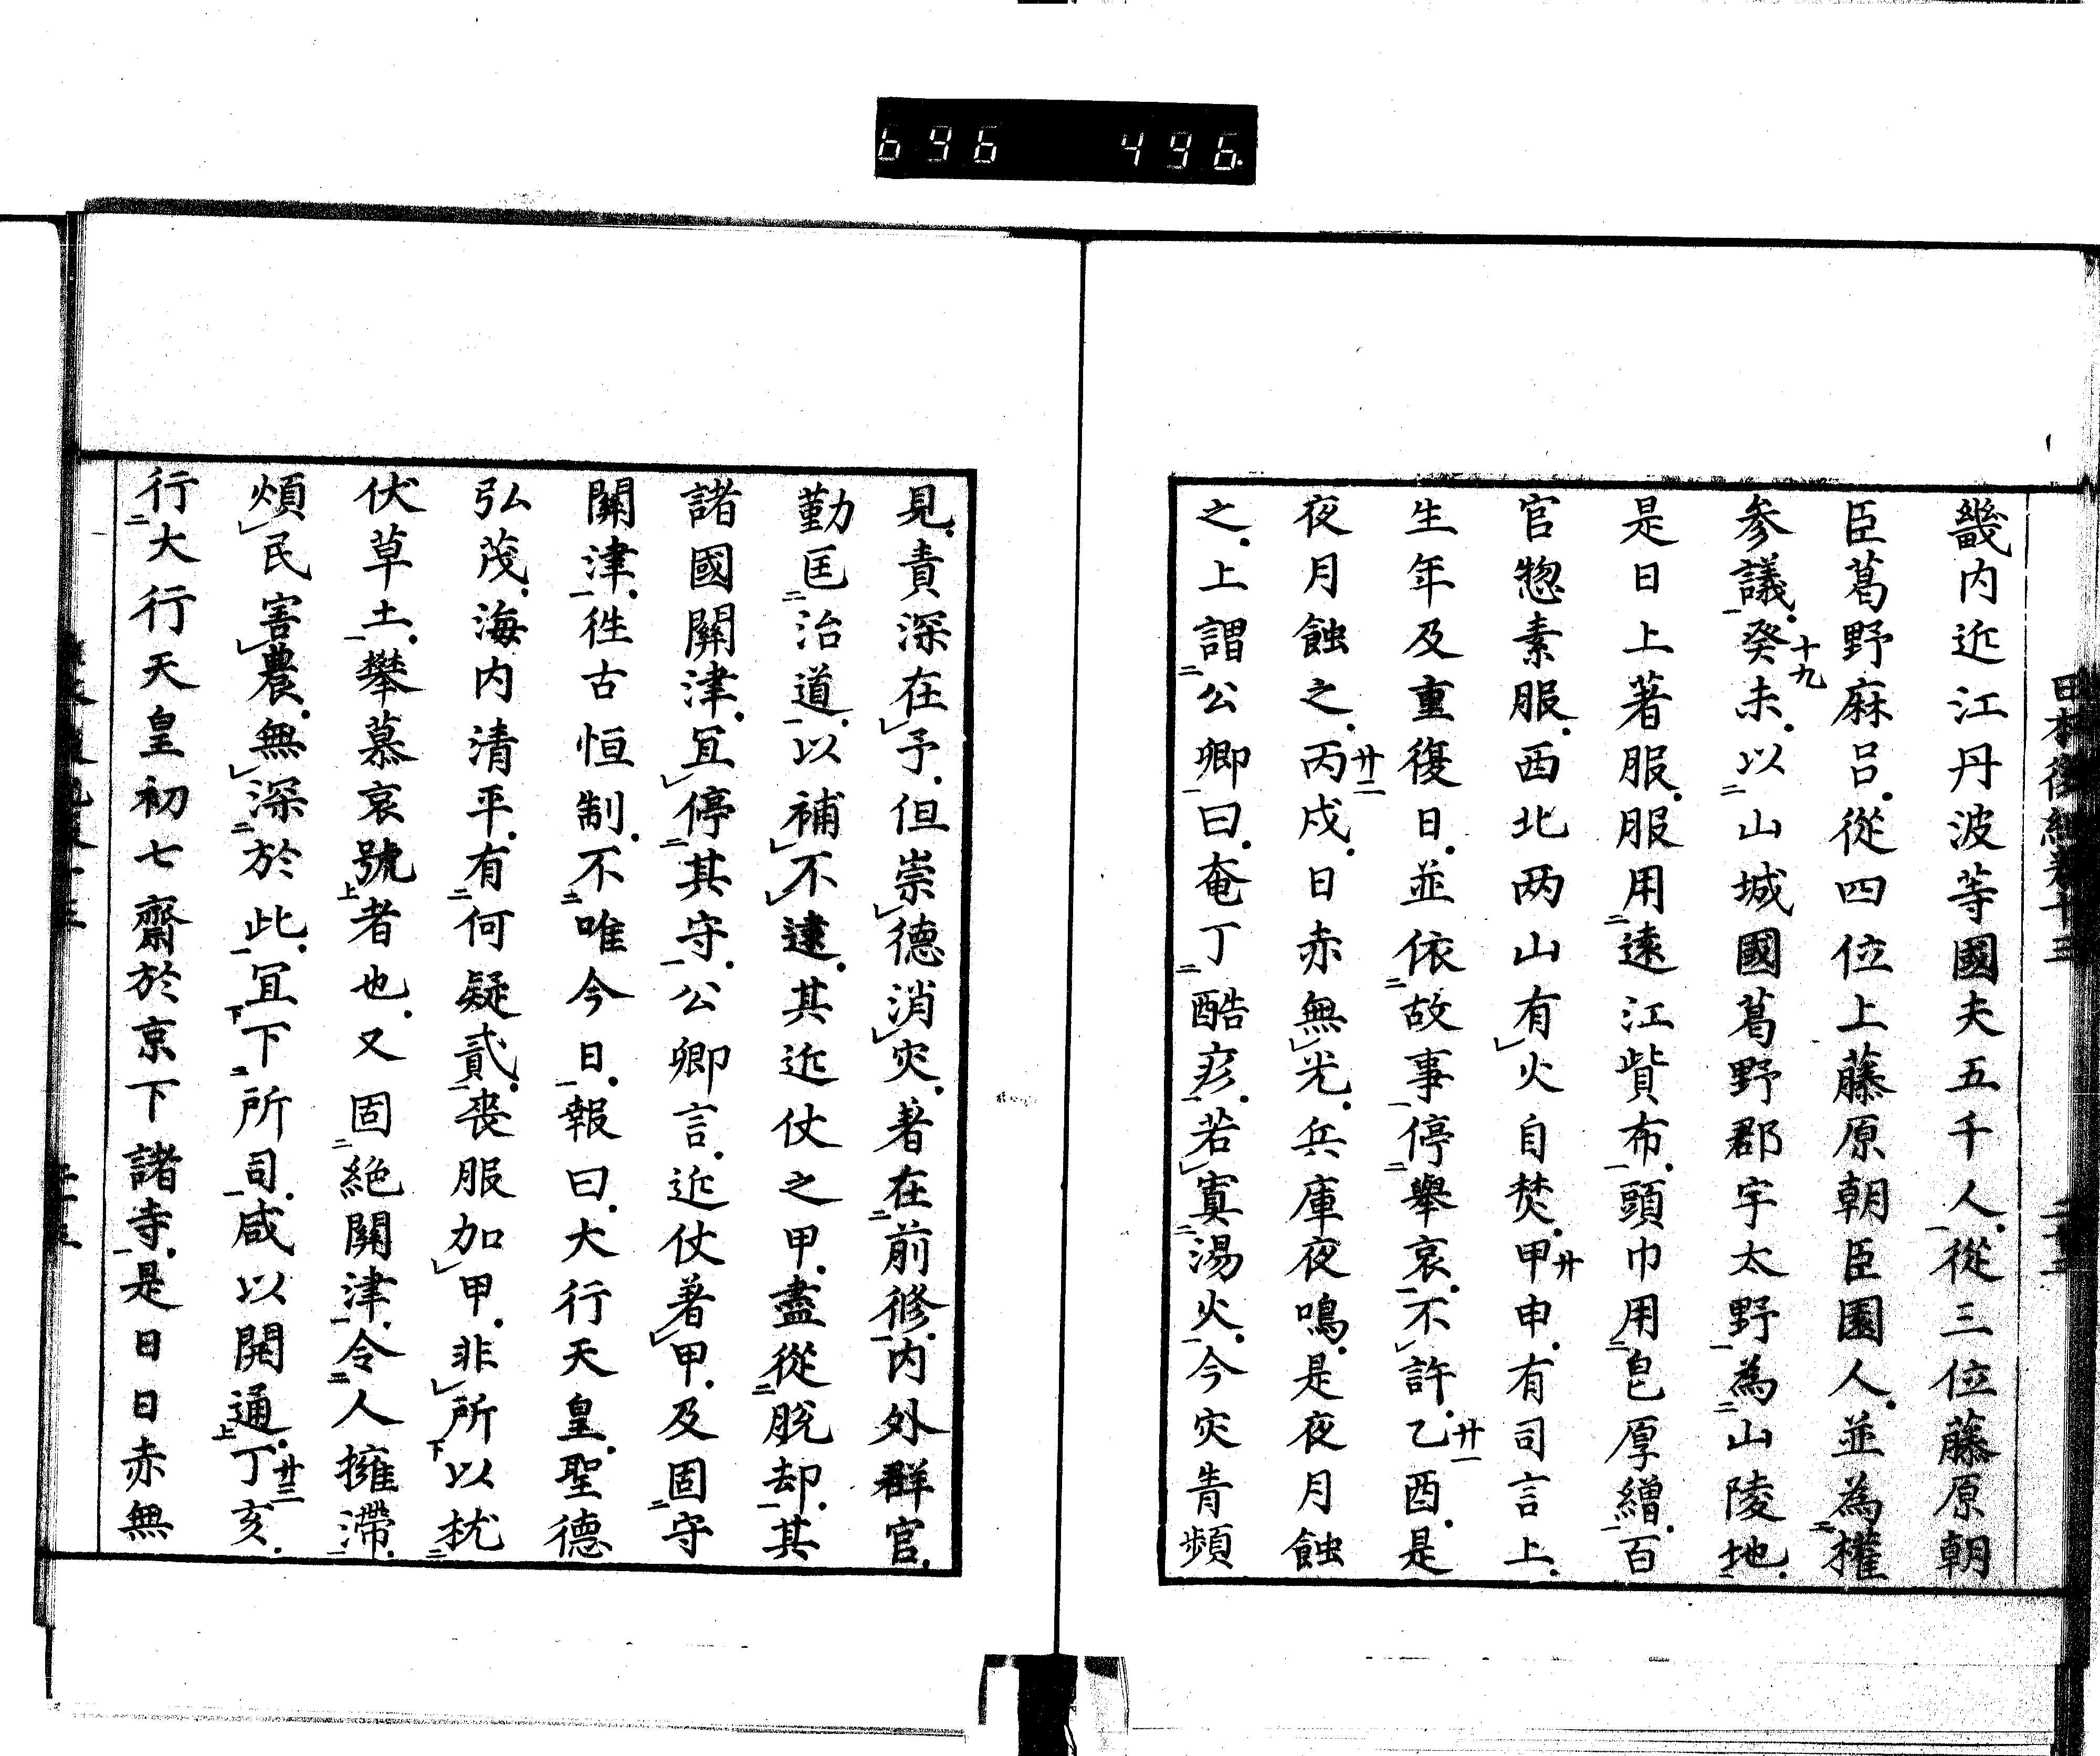 696 496
畿内近江丹波等國夫五千人從三位藤原朝
臣葛野麻呂從四位上藤原朝臣園人並為權
参議癸未十九以山城國葛野郡宇太野為山陵地
是日上著服服用遠江貲布頭巾用皂厚繒百
官惣素服西北两山有火自焚甲申廿有司言上
生年及重復日並依故事停擧哀不許乙酉廿一是
夜月蝕之丙戌廿二日赤無光兵庫夜鳴是夜月蝕
之上謂公卿曰奄丁酷疹若寘湯火今灾眚頻
見責深在予但崇德消灾著在前修内外群官
勤匡治道以補不逮其近仗之甲盡從脱却其
諸國關津冝停其守公卿言近仗著甲及固守
關津徃古恒制不唯今日報曰大行天皇聖德
弘茂海内清平有何疑貳喪服加甲非所以扰
伏草土攀慕哀號者也又固絶關津令人擁滯
煩民害農無深於此冝下所司咸以開通丁亥廿三
行大行天皇初七齋於京下諸寺是日日赤無